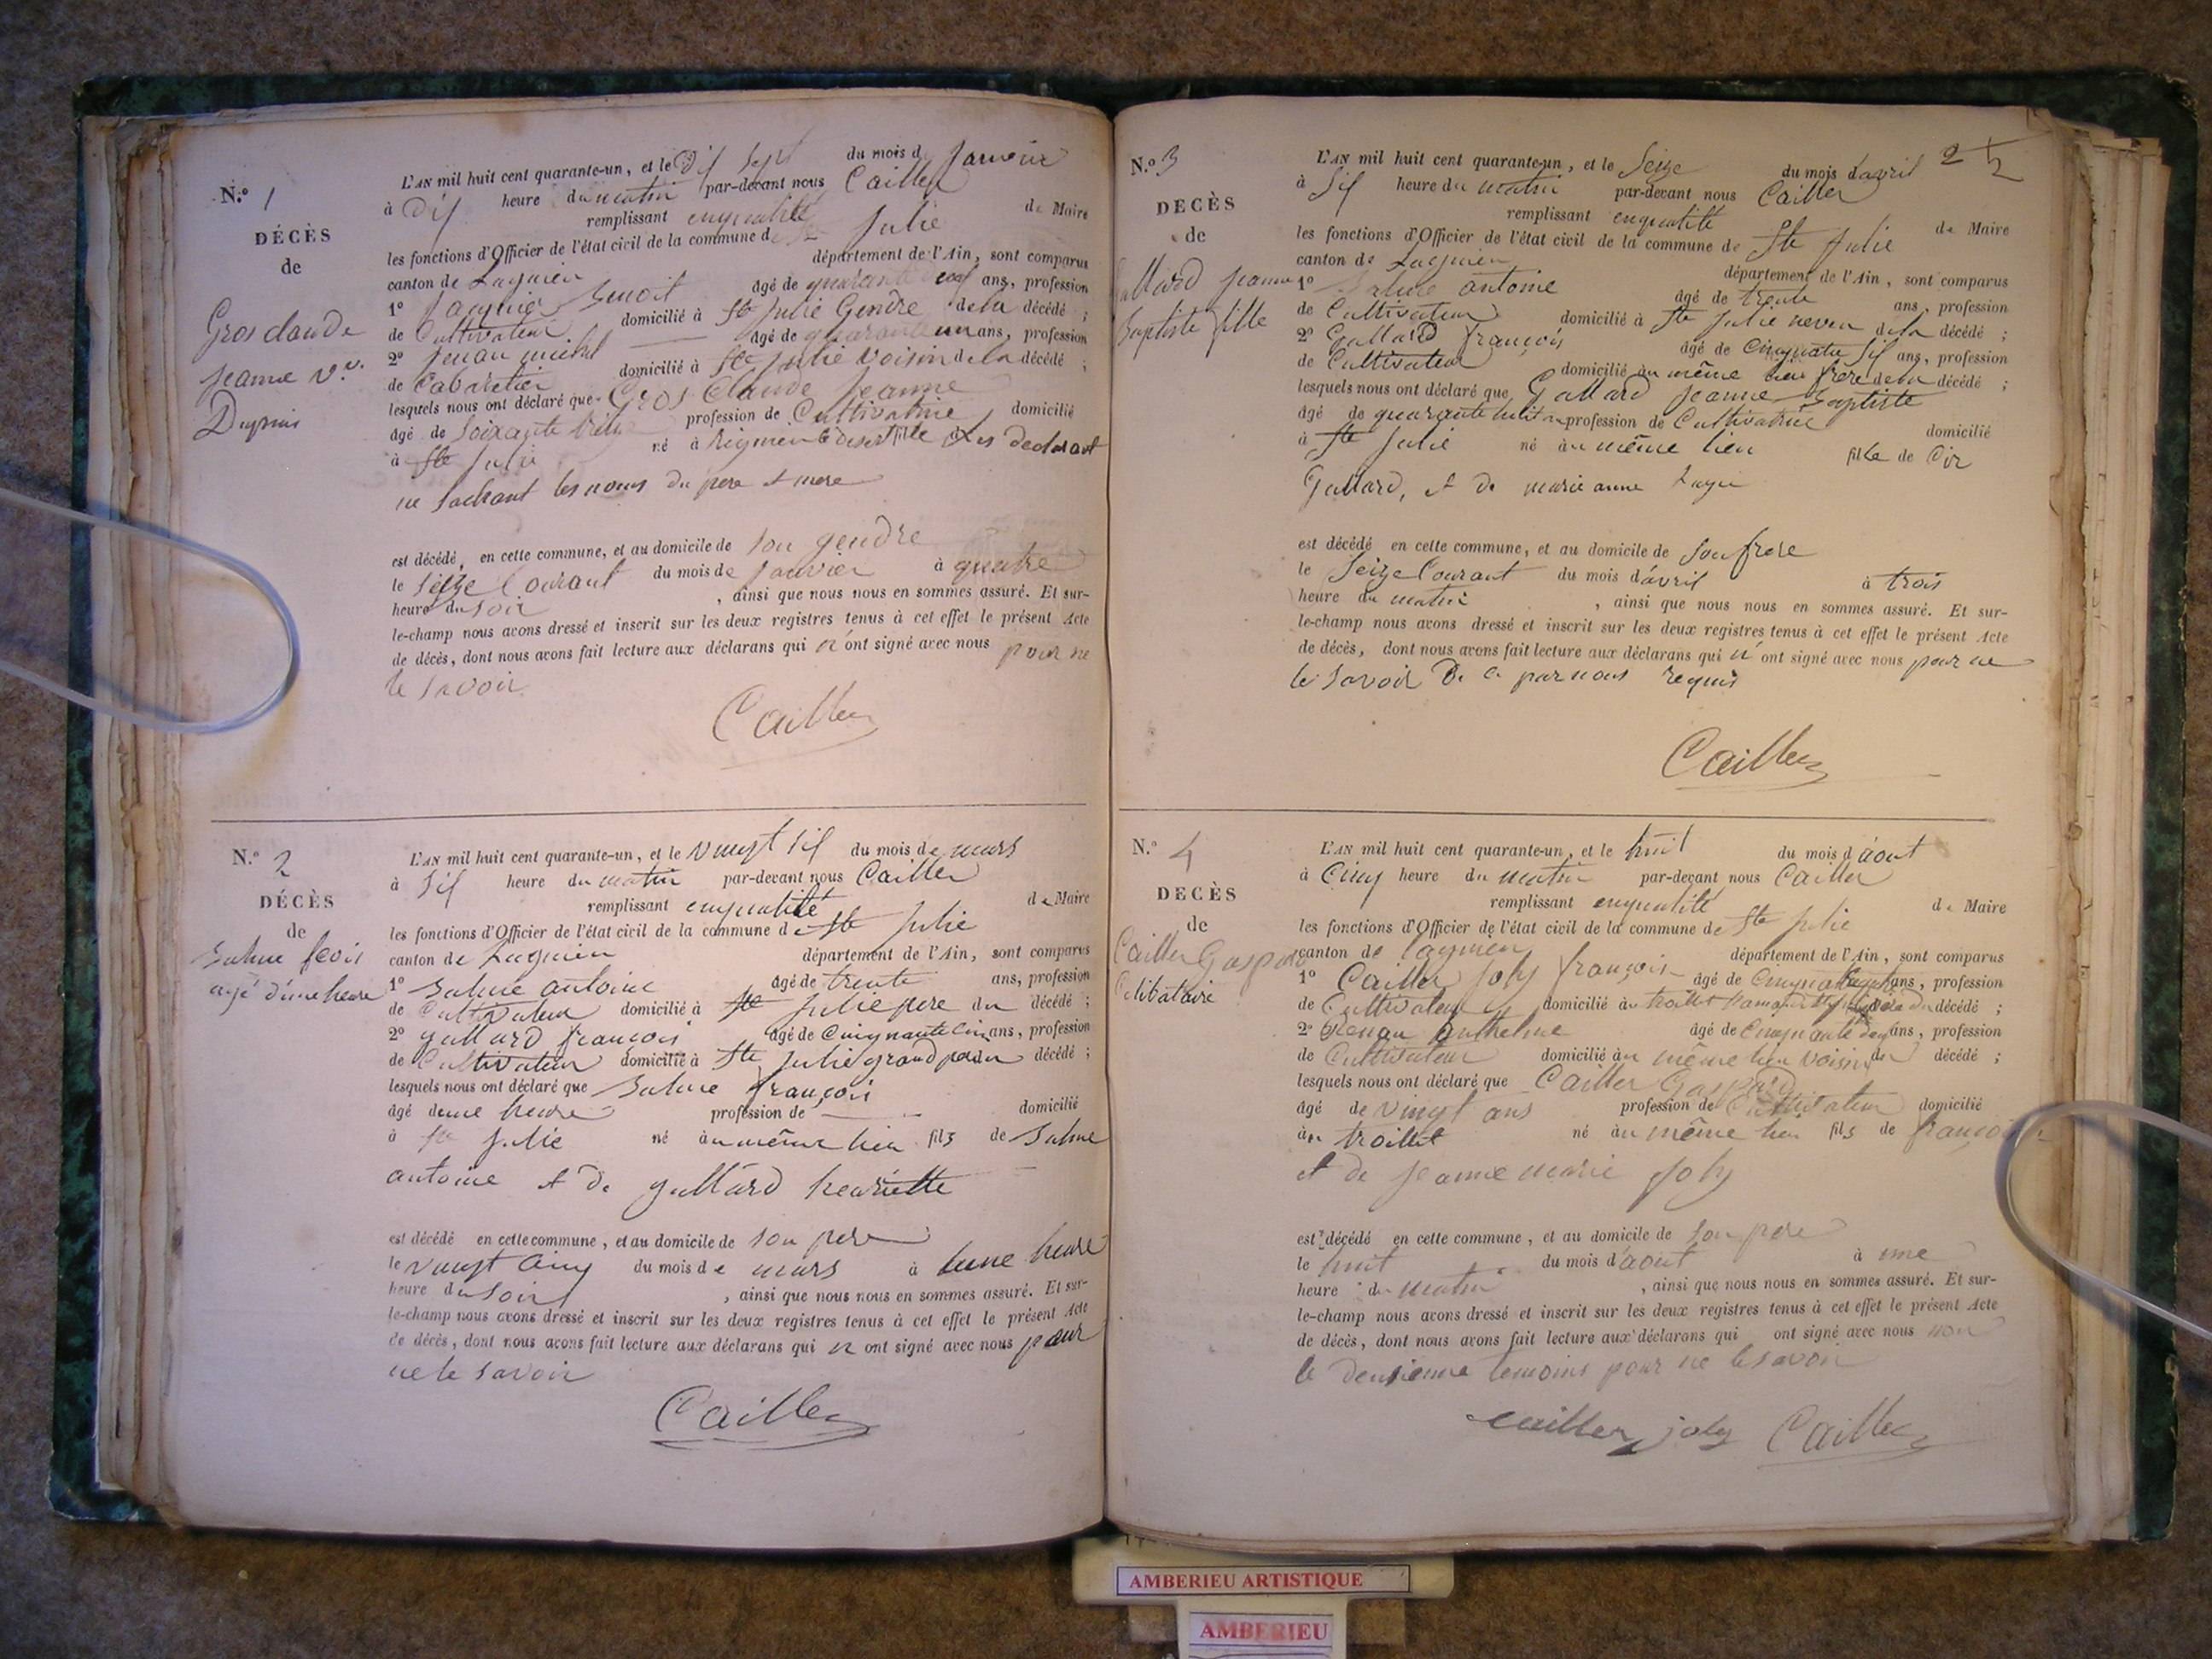 N.º 1
DÉCÈS
de
Gros claude
jeanne v.ve
Dupuis
L'AN mil huit cent quarante-un, et le Dix Sept du mois de Janvier
à Dix heure du matin par-devant nous Cailler
remplissant enqualité de Maire
les fonctions d'Officier de l'état civil de la commune de Ste Julie
canton de Lagnieu département de l'Ain, sont comparus
1º Benoit âgé de quarante ans, profession
de Cultivateur domicilié à Ste Julie Gendre de la décédé ;
2º michel âgé de quarante un ans, profession
de Cabaretier domicilié à Ste Julie Voisin de la décédé ;
lesquels nous ont déclaré que Gros Claude Jeanne
âgé de Soixante profession de Cultivatrice domicilié
à Ste Julie né à fille Les declarant
ne Sachant les noms du pere et mere
est décédé, en cette commune, et au domicile de Son gendre
le Seize Courant du mois de Janvier à quatre
heure du Soir , ainsi que nous nous en sommes assuré. Et sur-
le-champ nous avons dressé et inscrit sur les deux registres tenus à cet effet le présent Acte
de décès, dont nous avons fait lecture aux déclarans qui n'ont signé avec nous pour ne
le Savoir
Cailler
N.º 2
DÉCÈS
de
agé d'une heure
L'AN mil huit cent quarante-un, et le Vingt Six du mois de mars
à Six heure du matin par-devant nous Cailler
remplissant enqualité de Maire
les fonctions d'Officier de l'état civil de la commune de Ste Julie
canton de Lagnieu département de l'Ain, sont comparus
1º antoine âgé de trente ans, profession
de Cultivateur domicilié à Ste Julie pere du décédé ;
2º gallard françois âgé de Cinquante Cinq ans, profession
de Cultivateur domicilié à Ste Julie grand pere du décédé ;
lesquels nous ont déclaré que françois
âgé d'une heure profession de — domicilié
à Ste Julie né au même lieu fils de
antoine et de gallard henriette
est décédé en cette commune, et au domicile de Son pere
le Vingt Cinq du mois de mars à une heure
heure du Soir , ainsi que nous nous en sommes assuré. Et sur-
le-champ nous avons dressé et inscrit sur les deux registres tenus à cet effet le présent Acte
de décès, dont nous avons fait lecture aux déclarans qui n ont signé avec nous pour
ne le Savoir
Cailler
N.º 3
2
DECÈS
de
Gallard Jeanne
Baptiste fille
L'AN mil huit cent quarante-un, et le Seize du mois d'avril
à Six heure du matin par-devant nous Cailler
remplissant enqualité de Maire
les fonctions d'Officier de l'état civil de la commune de Ste Julie
canton de Lagnieu département de l'Ain, sont comparus
1º antoine âgé de trente ans, profession
de Cultivateur domicilié à Ste Julie neveu de la décédé ;
2º Gallard françois âgé de Cinquante Six ans, profession
de Cultivateur domicilié au même lieu frere de la décédé ;
lesquels nous ont déclaré que Gallard Jeanne Baptiste
âgé de quarante huit an profession de Cultivatrice domicilié
à Ste Julie né au même lieu fille de Cir
Gallard, et de marie anne
est décédé en cette commune, et au domicile de Son frere
le Seize Courant du mois d'avril à trois
heure du matin , ainsi que nous nous en sommes assuré. Et sur-
le-champ nous avons dressé et inscrit sur les deux registres tenus à cet effet le présent Acte
de décès, dont nous avons fait lecture aux déclarans qui n'ont signé avec nous pour ne
le Savoir De ce par nous requis
Cailler
N.º 4
DECÈS
de
Cailler Gaspard
Celibataire
L'AN mil huit cent quarante-un, et le huit du mois d'aout
à Cinq heure du matin par-devant nous Cailler
remplissant enqualité de Maire
les fonctions d'Officier de l'état civil de la commune de Ste Julie
canton de Lagnieu département de l'Ain, sont comparus
1º Cailler Joly françois âgé de ans, profession
de Cultivateur domicilié au trollet décédé ;
2º Renau Anthelme âgé de Cinquante deux ans, profession
de Cultivateur domicilié au même lieu Voisin du décédé ;
lesquels nous ont déclaré que Cailler Gaspard
âgé de Vingt ans profession de Cultivateur domicilié
au trollet né au même lieu fils de françois
et de Jeanne marie Joly
est décédé en cette commune, et au domicile de Son pere
le huit du mois d'aout à une
heure du matin , ainsi que nous nous en sommes assuré. Et sur-
le-champ nous avons dressé et inscrit sur les deux registres tenus à cet effet le présent Acte
de décès, dont nous avons fait lecture aux déclarans qui ont signé avec nous non
le deusieme temoins pour ne le savoir
cailler joly Cailler
AMBERIEU ARTISTIQUE
AMBERIEU